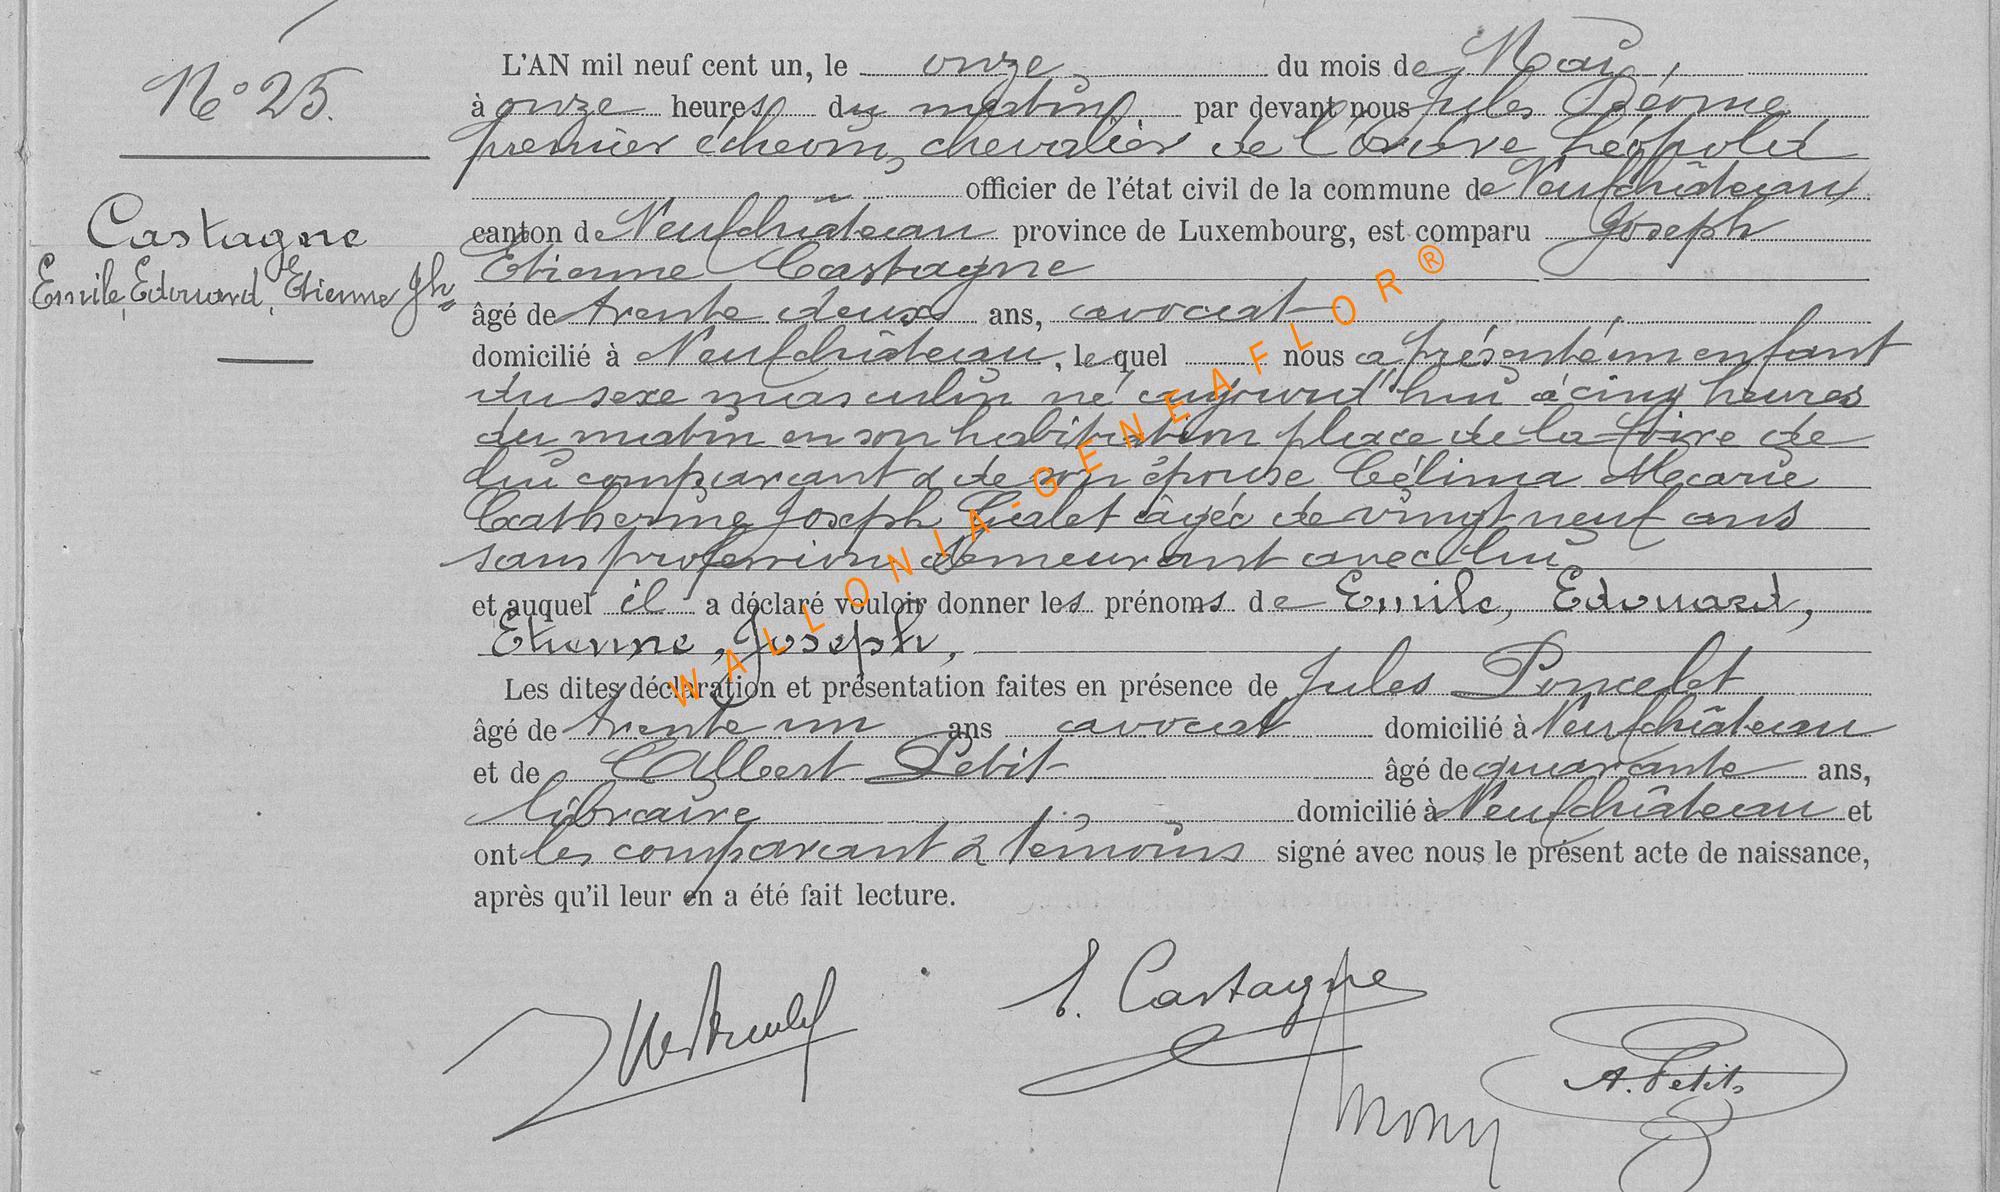 N° 25.
Castagne
Emile, Edouard, Etienne Jh
L'AN mil neuf cent un, le onze du mois de Mai,
à onze heures du matin, par devant nous Jules
premier échevin, chevalier de l'Ordre Léopold
officier de l'état civil de la commune de Neufchâteau,
canton de Neufchâteau province de Luxembourg, est comparu Joseph
Etienne Castagne
âgé de trente deux ans, avocat
domicilié à Neufchâteau, lequel nous a présenté un enfant
du sexe masculin né aujourd'hui à cinq heures
du matin en son habitation place de la foire de
lui comparant & de son épouse Célina Marie
Catherine Joseph âgée de vingt neuf ans
sans profession demeurant avec lui
et auquel il a déclaré vouloir donner les prénoms de Emile, Edouard,
Etienne, Joseph,
Les dites déclaration et présentation faites en présence de Jules Poncelet
âgé de trente un ans avocat domicilié à Neufchâteau
et de Albert Petit âgé de quarante ans,
libraire domicilié à Neufchâteau et
ont les comparant & témoins signé avec nous le présent acte de naissance,
après qu'il leur en a été fait lecture.
E. Castagne
A. Petit
WALLONIA-GENEAFLOR®